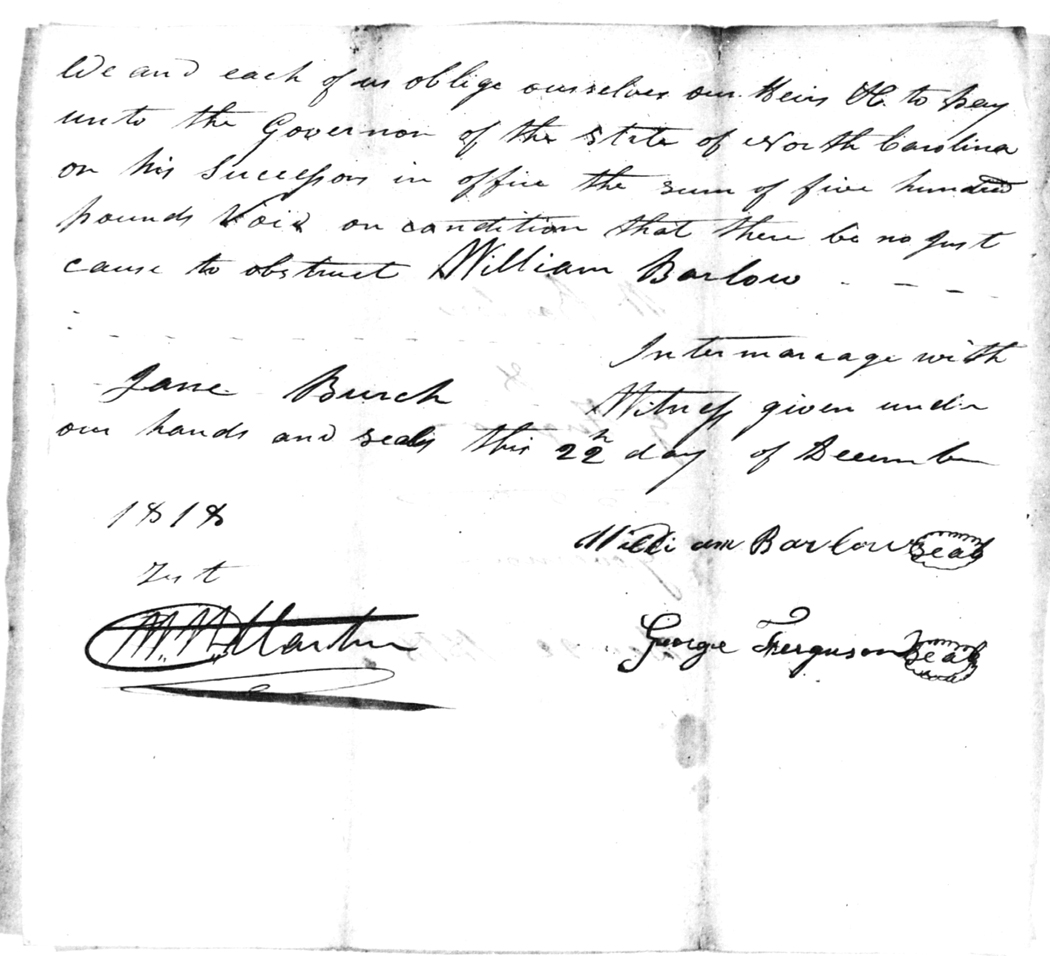 We and each of us oblige ourselves our Heirs &C. to pay
unto the Governor of the State of North Carolina
or his Successors in office the sum of five hundred
pounds Void on condition that there be no just
cause to obstruct William Barlow
Intermarage with
Jane Burch Witness given under
our hands and seals this 22h day of December
1818
William Barlow Seal
Test
M. Martin
George Ferguson Seal